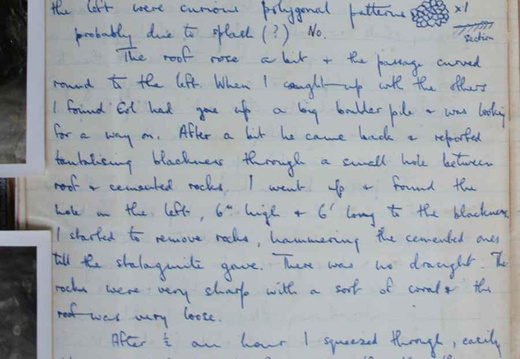 the left were curious polygonal patterns x1
probably due to splash (?) No. section
The roof rose a bit & the passage curved
round to the left. When I caught up with the others
I found Col had gone up a big boulder pile & was looking
for a way on. After a bit he came back & reported
tantalising blackness through a small hole between
roof & cemented rocks. I went up & found the
hole on the left, 6" high & 6' long to the blackness
I started to remove rocks, hammering the cemented ones
till the stalagmite gave. There was no draught. The
rocks were very sharp with a sort of coral & the
roof was very loose.
After ½ an hour I squeezed through, easily